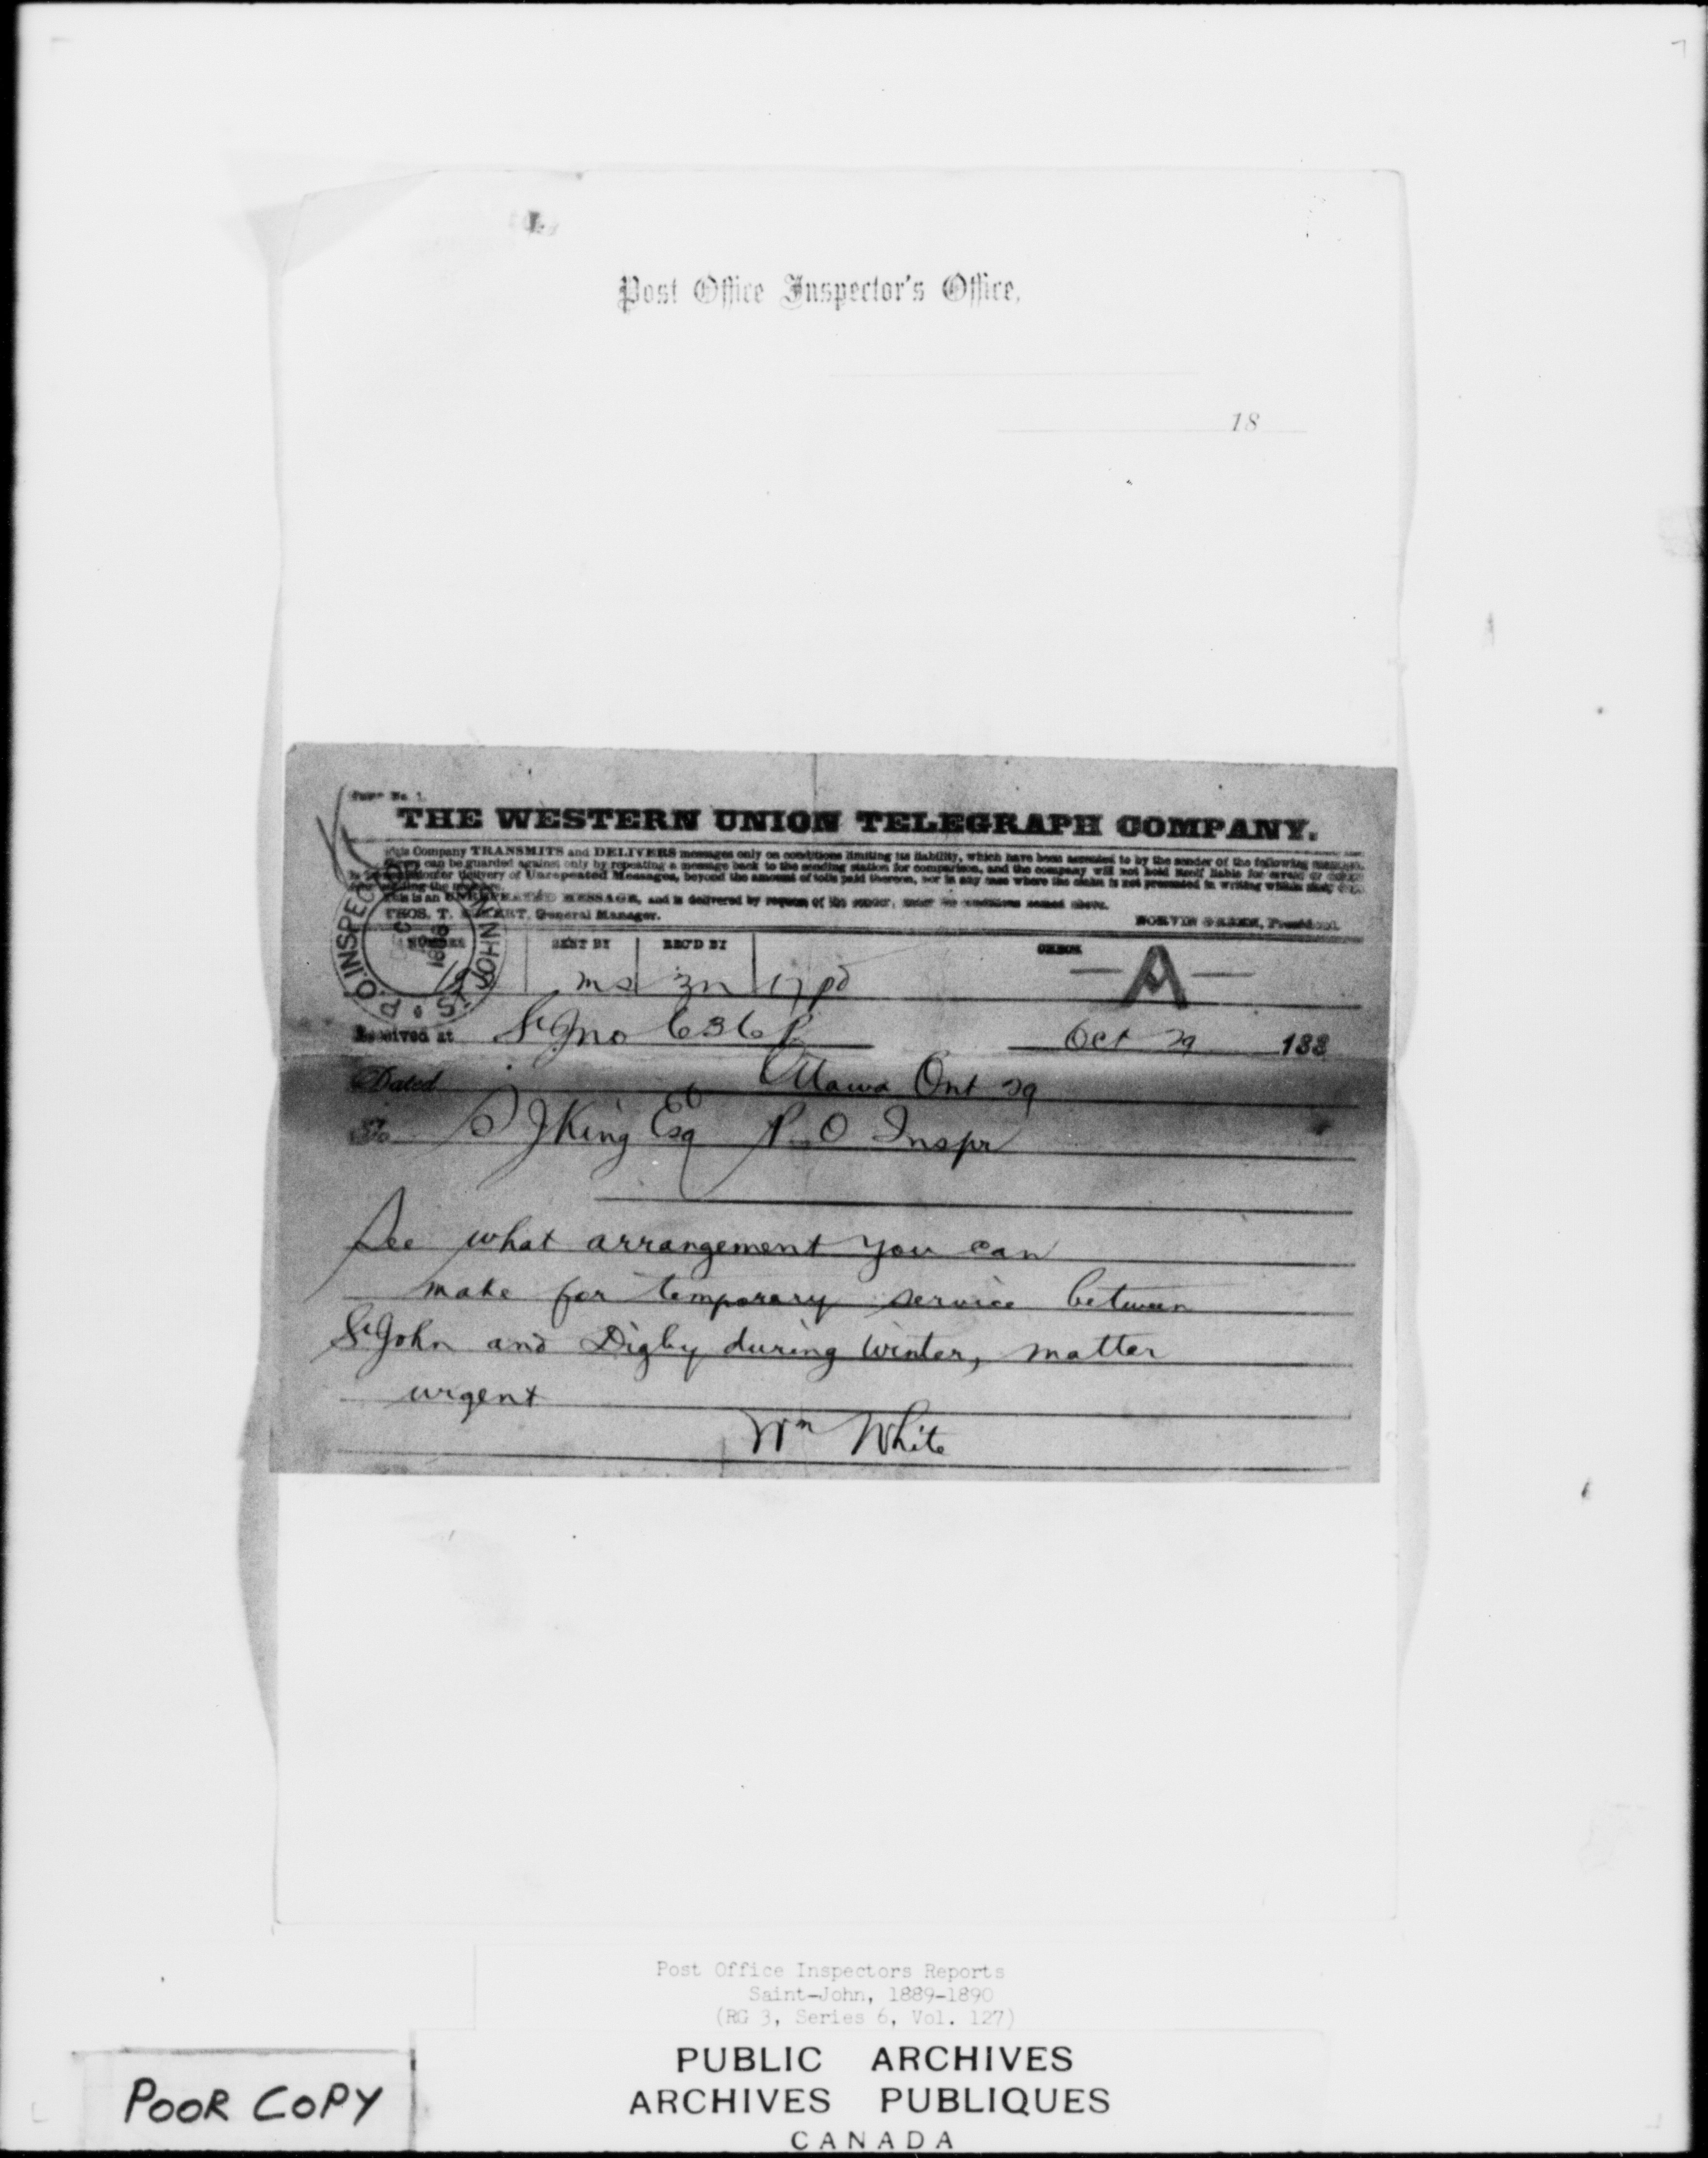 Post Office Inspector's Office,
18
Form No. 1.
THE WESTERN UNION TELEGRAPH COMPANY.
This Company TRANSMITS and DELIVERS messages only on conditions limiting its liability, which have been assented to by the sender of the following message.
Errors can be guarded against only by repeating a message back to the sending station for comparison, and the company will not hold itself liable for errors or delays
delivery of Unrepeated Messages, beyond the amount of tolls paid thereon, nor in any case where the claim is not presented in writing within sixty days
the message.
This is an UNREPEATED MESSAGE, and is delivered by request of the sender, under the conditions named above.
THOS. T. ECKERT, General Manager.
NORVIN GREEN, President.
P.O. INSPEC
ST JOHN N
NUMBER
SENT BY
REC'D BY
CHECK
ms
17 pd
— A —
Received at St Jno 636 P
Oct 29 188
Dated Ottawa Ont 29
To S J King Esq P. O Inspr
See what arrangement you can
make for temporary service between
St John and Digby during winter, matter
urgent
Wm White
Post Office Inspectors Reports
Saint-John, 1889-1890
(RG 3, Series 6, Vol. 127)
PUBLIC ARCHIVES
ARCHIVES PUBLIQUES
CANADA
POOR COPY